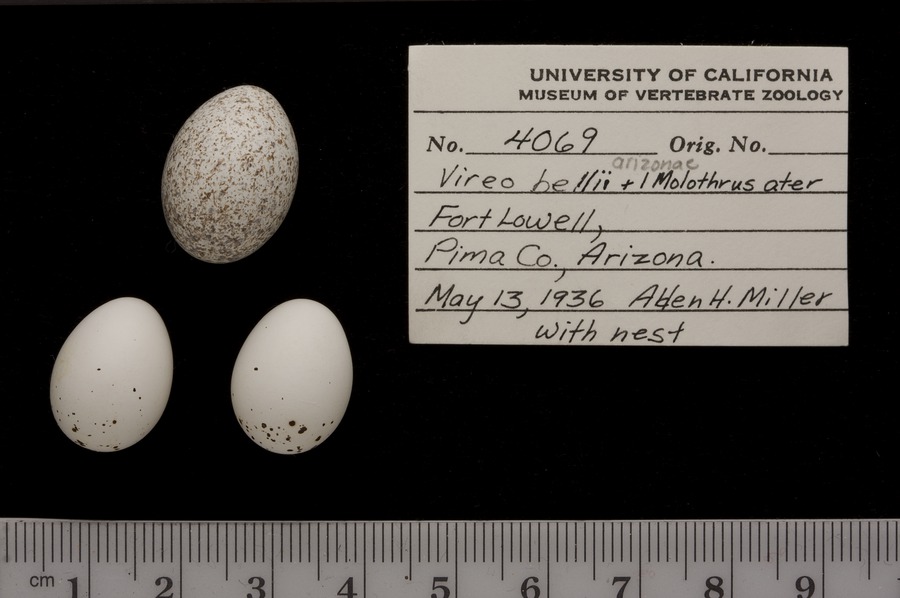 UNIVERSITY OF CALIFORNIA
MUSEUM OF VERTEBRATE ZOOLOGY
No. 4069 Orig. No.
arizonae
Vireo bellii + 1 Molothrus ater
Fort Lowell,
Pima Co., Arizona.
May 13, 1936 Alden H. Miller
with nest
cm 1 2 3 4 5 6 7 8 9